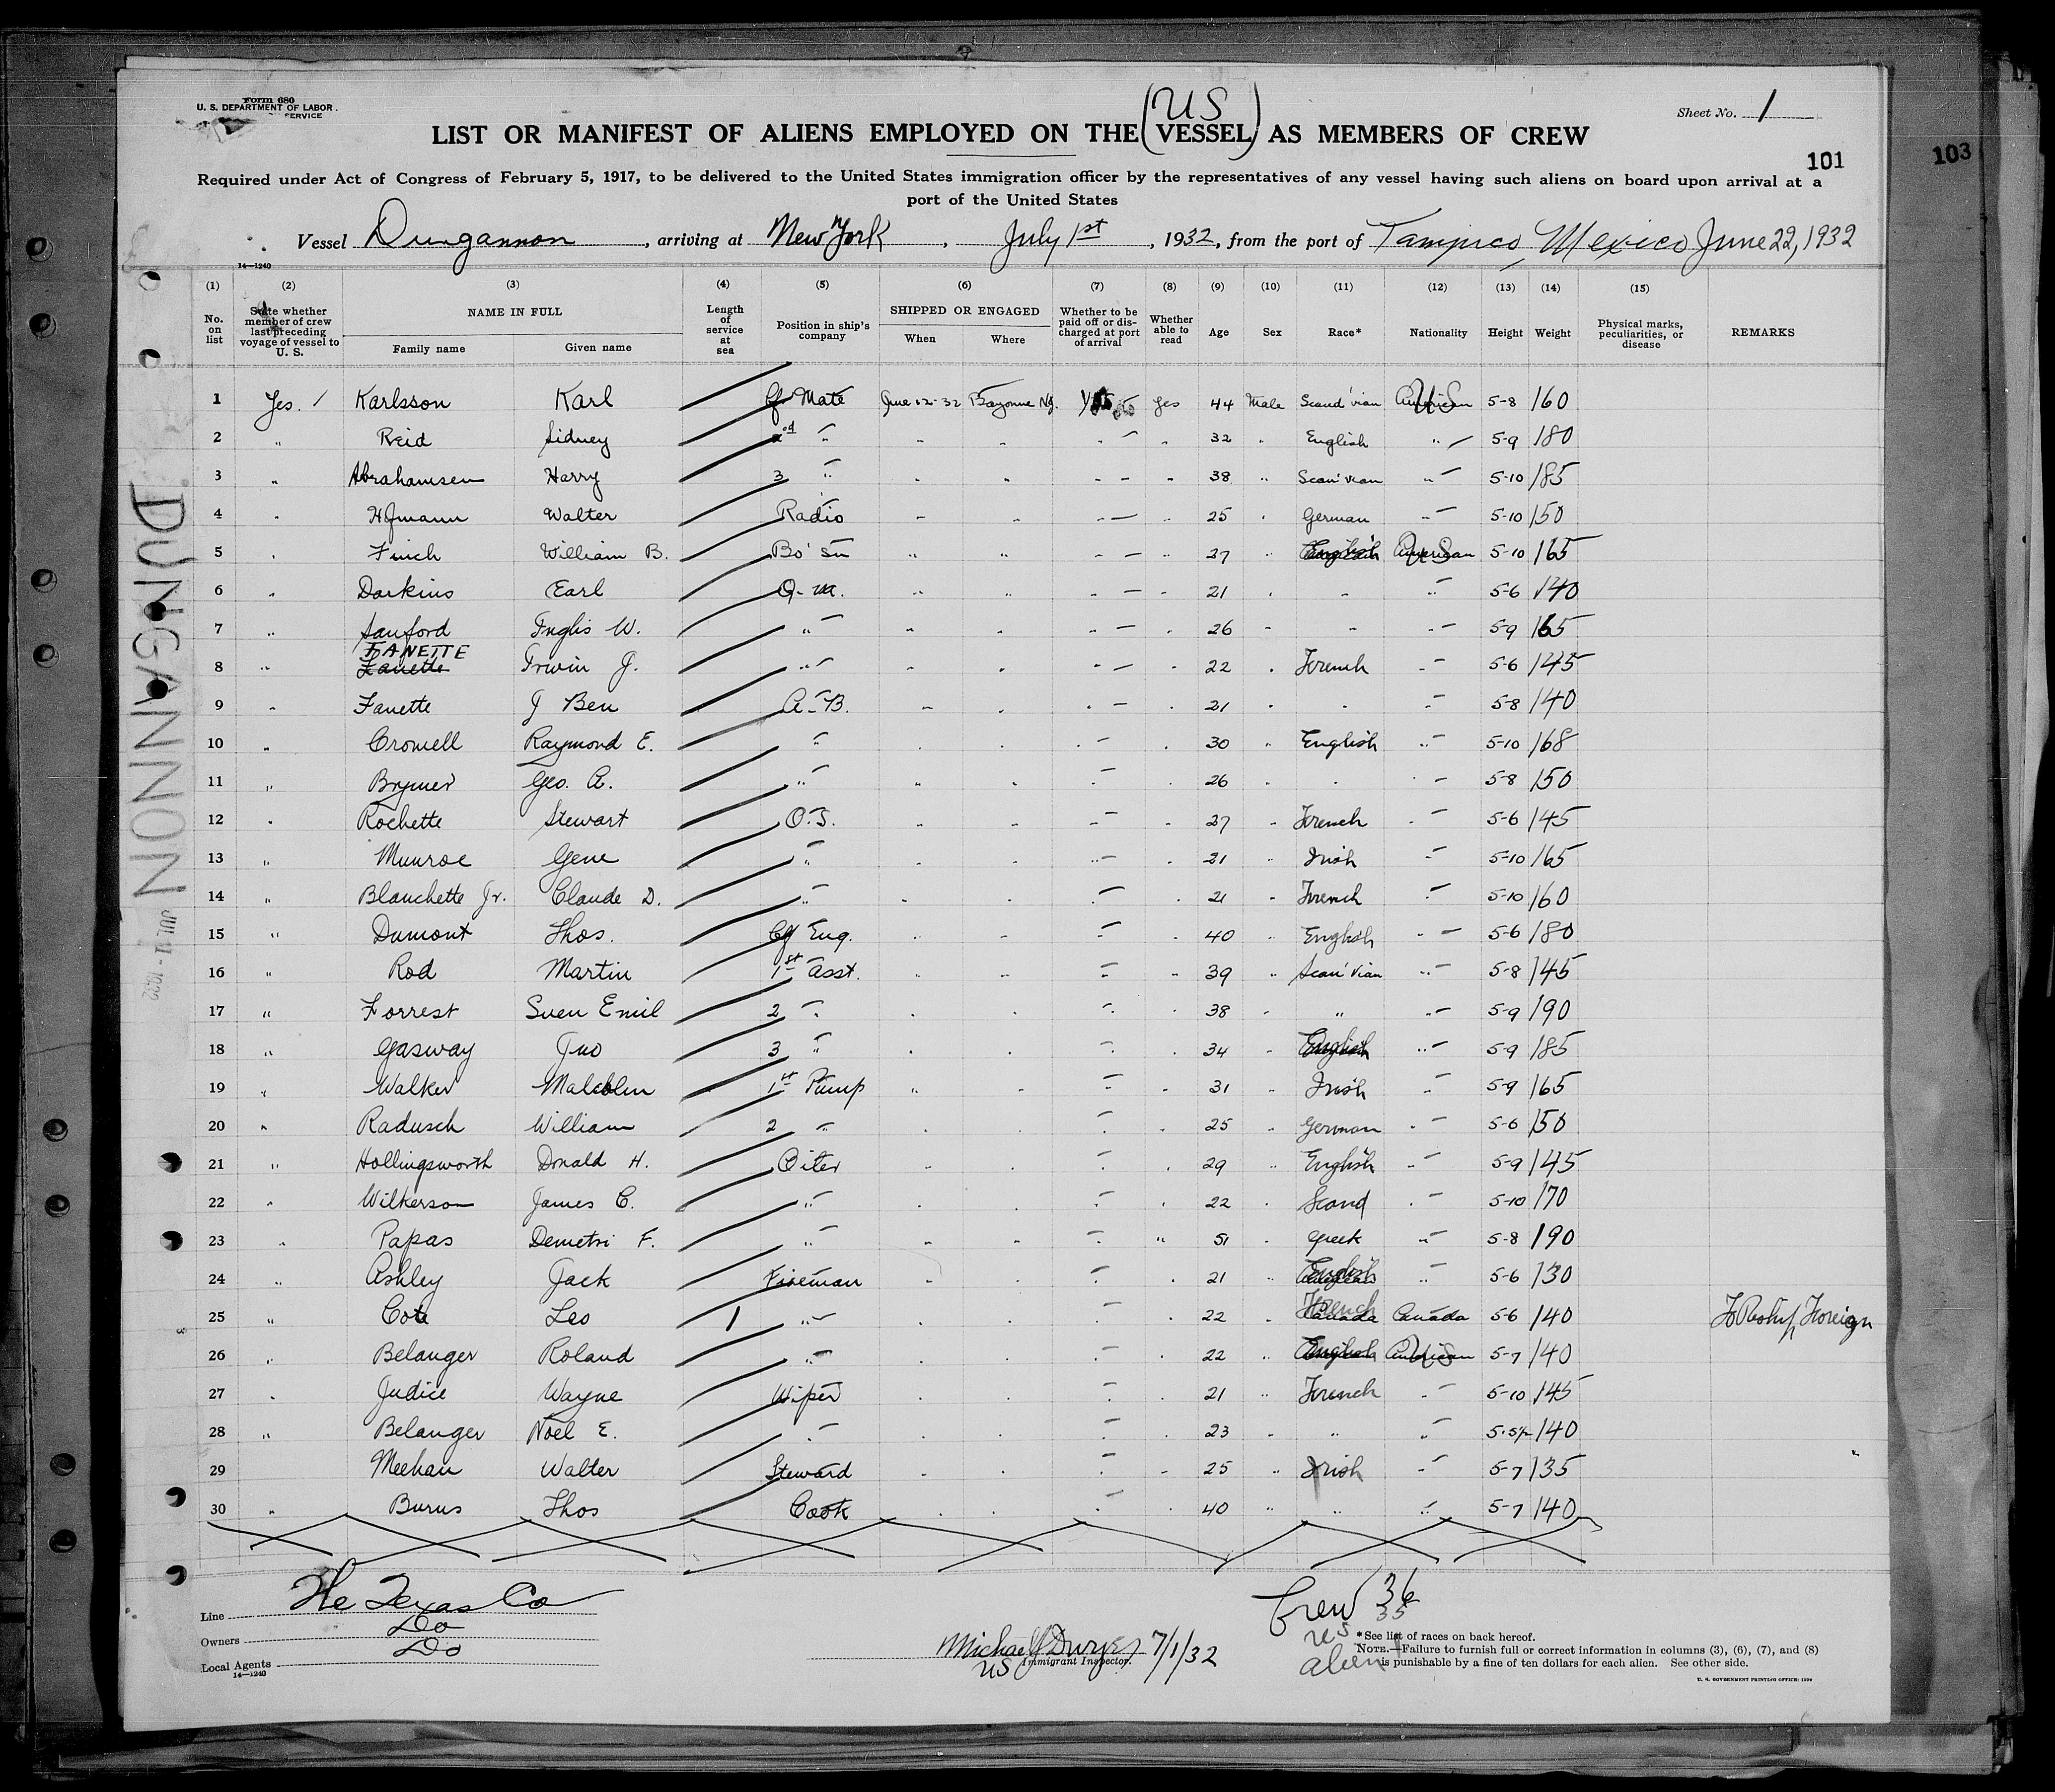 Form 680
U. S. DEPARTMENT OF LABOR
SERVICE
Sheet No. 1
(US)
LIST OR MANIFEST OF ALIENS EMPLOYED ON THE VESSEL AS MEMBERS OF CREW
101
103
Required under Act of Congress of February 5, 1917, to be delivered to the United States immigration officer by the representatives of any vessel having such aliens on board upon arrival at a
port of the United States
Vessel Dungannon, arriving at New York, July 1st, 1932, from the port of Tampico, Mexico June 22, 1932
14—1240
(1) (2) (3) (4) (5) (6) (7) (8) (9) (10) (11) (12) (13) (14) (15)
No. on list State whether member of crew last preceding voyage of vessel to U. S. NAME IN FULL Family name Given name Length of service at sea Position in ship's company SHIPPED OR ENGAGED When Where Whether to be paid off or discharged at port of arrival Whether able to read Age Sex Race* Nationality Height Weight Physical marks, peculiarities, or disease REMARKS
1 Yes. Karlsson Karl Cf. Mate June 12-32 Bayonne NJ. Yes 44 Male Scand'vian American US 5-8 160
2 " Reid Sidney 2nd " " " " " 32 " English " 5-9 180
3 " Abrahamsen Harry 3 " " " " " 38 " Scan'vian " 5-10 185
4 " Walter Radio " " " " 25 " German " 5-10 150
5 " Finch William B. Bo'sn " " " " 27 " English American US 5-10 165
6 " Darkins Earl Q-M. " " " " 21 " " " 5-6 140
7 " Sanford Inglis W. " " " " " 26 " " " 5-9 165
FANETTE
8 " Fanette Irwin J. " " " " " 22 " French " 5-6 145
9 " Fanette J Ben A-B. " " " " 21 " " " 5-8 140
10 " Crowell Raymond E. " " " " " 30 " English " 5-10 168
11 " Brymer Geo. A. " " " " " 26 " " " 5-8 150
12 " Rochette Stewart O.S. " " " " 27 " French " 5-6 145
13 " Munroe Gene " " " " " 21 " Irish " 5-10 165
14 " Blanchette Jr. Claude D. " " " " " 21 " French " 5-10 160
15 " Dumont Thos. Cf Eng. " " " " 40 " English " 5-6 180
16 " Rod Martin 1st Asst. " " " " 39 " Scan'vian " 5-8 145
17 " Forrest Sven Emil 2 " " " " " 38 " " " 5-9 190
18 " Gasway Jno 3 " " " " " 34 " English " 5-9 185
19 " Walker Malcolm 1st Pump " " " " 31 " Irish " 5-9 165
20 " Radusch William 2 " " " " " 25 " German " 5-6 150
21 " Hollingsworth Donald H. Oiler " " " " 29 " English " 5-9 145
22 " Wilkerson James C. " " " " " 22 " Scand " 5-10 170
23 " Papas Demetri F. " " " " " 51 " Greek " 5-8 190
24 " Ashley Jack Fireman " " " " 21 " English " 5-6 130
25 " Cote Leo 1 " " " " " 22 " French Canada Canada 5-6 140 To Reship Foreign
26 " Belanger Roland " " " " " 22 " English American US 5-7 140
27 " Judice Wayne Wiper " " " " 21 " French " 5-10 145
28 " Belanger Noel E. " " " " " 23 " " " 140
29 Meehan Walter Steward " " " " 25 " Irish " 5-7 135
30 " Burns Thos Cook " " " 40 " " " 5-7 140
DUNGANNON
JUL 1 - 1932
Line The Texas Co
Owners Do
Local Agents Do
14—1240
Michael J Dwyer 7/1/32
US Immigrant Inspector.
Crew 36
US 35
alien 1
*See list of races on back hereof.
NOTE.—Failure to furnish full or correct information in columns (3), (6), (7), and (8)
is punishable by a fine of ten dollars for each alien. See other side.
U. S. GOVERNMENT PRINTING OFFICE: